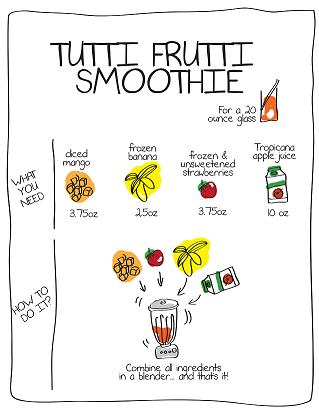 TUTTI FRUTTI
SMOOTHIE
For a 20
ounce glass
WHAT
YOU
NEED
diced
mango
3.75oz
frozen
banana
2.5oz
frozen &
unsweetened
strawberries
3.75oz
Tropicana
apple juice
10 oz
HOW TO
DO IT?
Combine all ingredients
in a blender... and that's it!